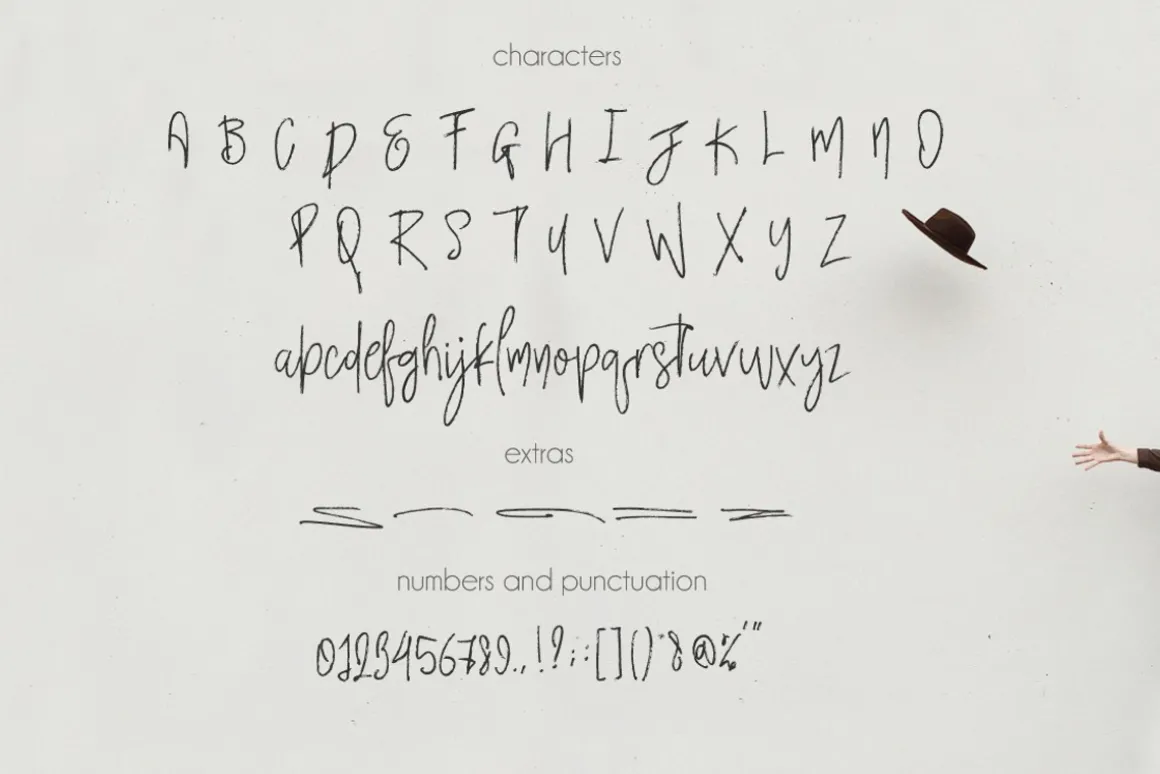 characters
A B C D E F G H I J K L M N O
P Q R S T U V W X Y Z
abcdefghijklmnopqrstuvwxyz
extras
numbers and punctuation
0123456789.,!?;:[]()*&@%'"